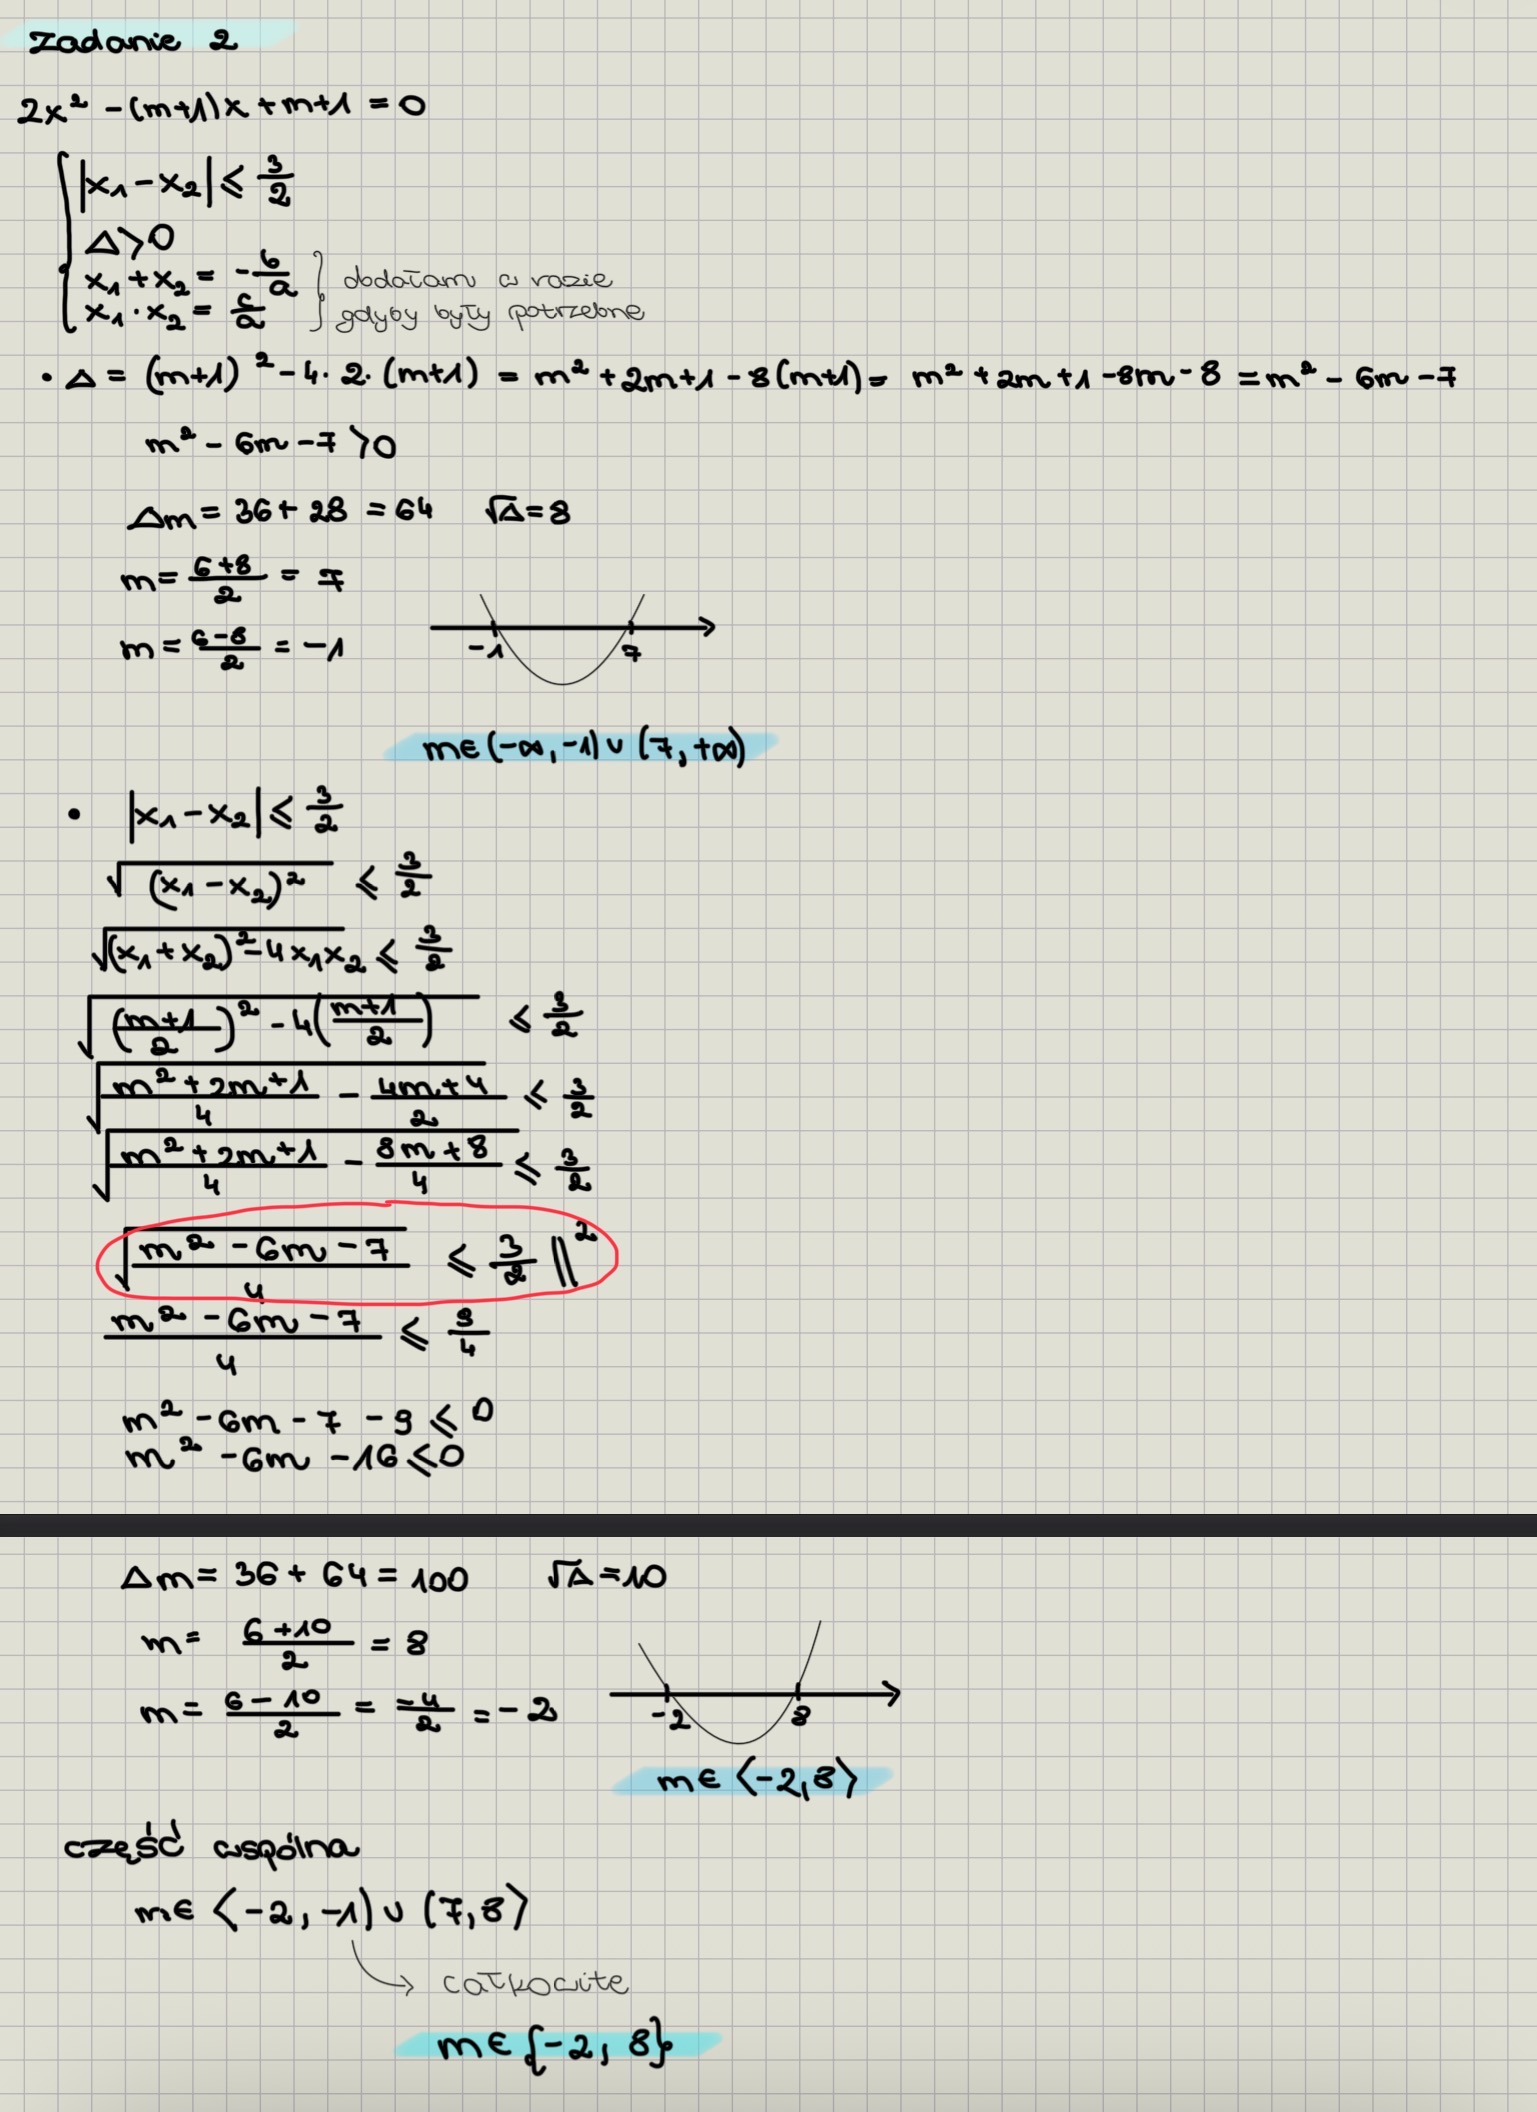 Zadanie 2
2x² - (m+1)x + m+1 = 0
|x₁ - x₂| ≤ 3/2
Δ > 0
x₁ + x₂ = -b/a } dodałam w razie
x₁ · x₂ = c/a } gdyby były potrzebne
• Δ = (m+1)² - 4 · 2 · (m+1) = m² + 2m + 1 - 8(m+1) = m² + 2m + 1 - 8m - 8 = m² - 6m - 7
m² - 6m - 7 > 0
Δm = 36 + 28 = 64 √Δ = 8
m = (6+8)/2 = 7
m = (6-8)/2 = -1
-1 7
m∈(-∞, -1) ∪ (7, +∞)
• |x₁ - x₂| ≤ 3/2
√((x₁ - x₂)²) ≤ 3/2
√((x₁ + x₂)² - 4x₁x₂) ≤ 3/2
√(((m+1)/2)² - 4((m+1)/2)) ≤ 3/2
√((m² + 2m + 1)/4 - (4m+4)/2) ≤ 3/2
√((m² + 2m + 1)/4 - (8m + 8)/4) ≤ 3/2
√((m² - 6m - 7)/4) ≤ 3/2 ||²
(m² - 6m - 7)/4 ≤ 9/4
m² - 6m - 7 - 9 ≤ 0
m² - 6m - 16 ≤ 0
Δm = 36 + 64 = 100 √Δ = 10
m = (6+10)/2 = 8
m = (6-10)/2 = -4/2 = -2
-2 8
m∈⟨-2, 8⟩
część wspólna
m∈⟨-2, -1) ∪ (7, 8⟩
całkowite
m∈{-2, 8}